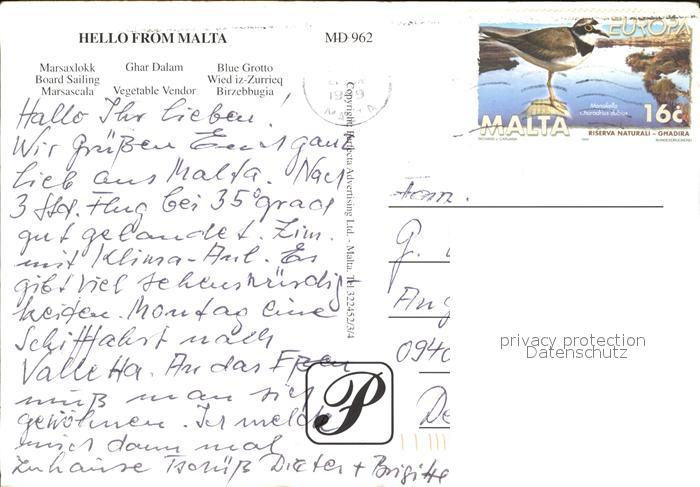 HELLO FROM MALTA
MD 962
Marsaxlokk Ghar Dalam Blue Grotto
Board Sailing Wied iz-Zurrieq
Marsascala Vegetable Vendor Birzebbugia
EUROPA
Monakella
«Charadrius dubius»
16c
MALTA
RISERVA NATURALI - GHADIRA
Hallo Ihr Lieben!
Wir grüßen Euch ganz
lieb aus Malta. Nach
3 Std. Flug bei 35° grad
gut gelandet. Zim.
mit Klima-Anl. Es
gibt viel sehenswürdig
keiten. Montag eine
Schiffahrt nach
Valletta. An das Essen
muß man sich
gewöhnen. Ich melde
mich dann mal
zuhause Tschüß Dieter + Brigitte
Copyright Advertising Ltd. - Malta. Tel 322452/3/4
P
Fam.
G.
Ang
0940
De
privacy protection
Datenschutz